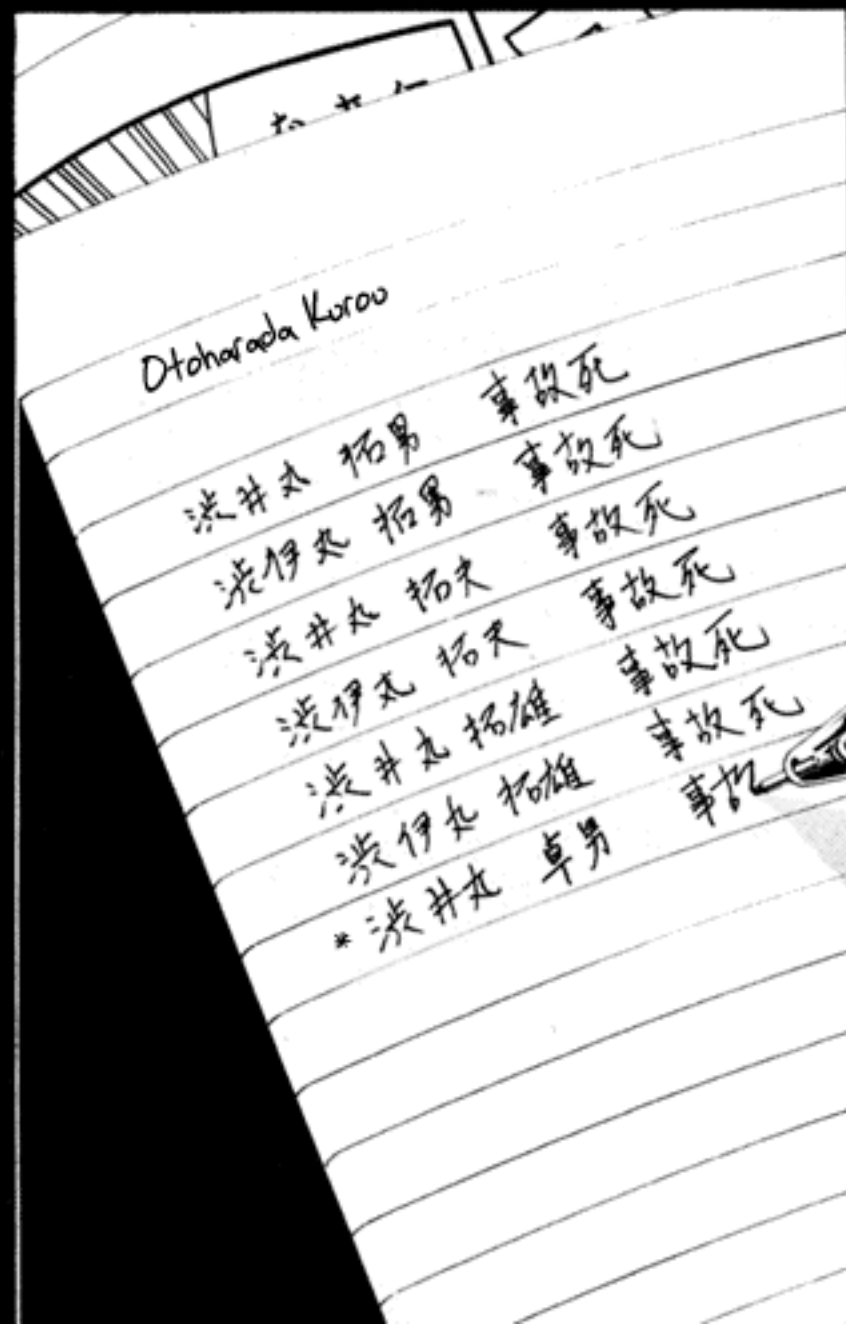 Otoharada Kuroo
渋井丸 拓男 事故死
渋伊丸 拓男 事故死
渋井丸 拓夫 事故死
渋伊丸 拓夫 事故死
渋井丸 拓雄 事故死
渋伊丸 拓雄 事故死
*渋井丸 卓男 事故